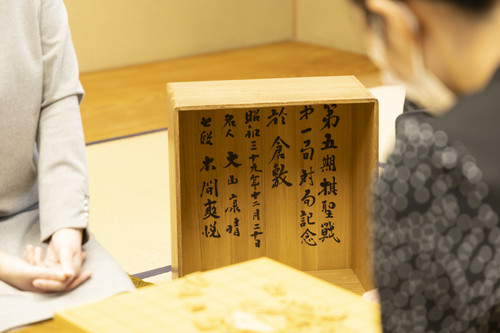 第五期棋聖戰
第一局対局記念
於倉敷
昭和三十九年十二月二十日
名人 大山康晴
七段 本間爽悦